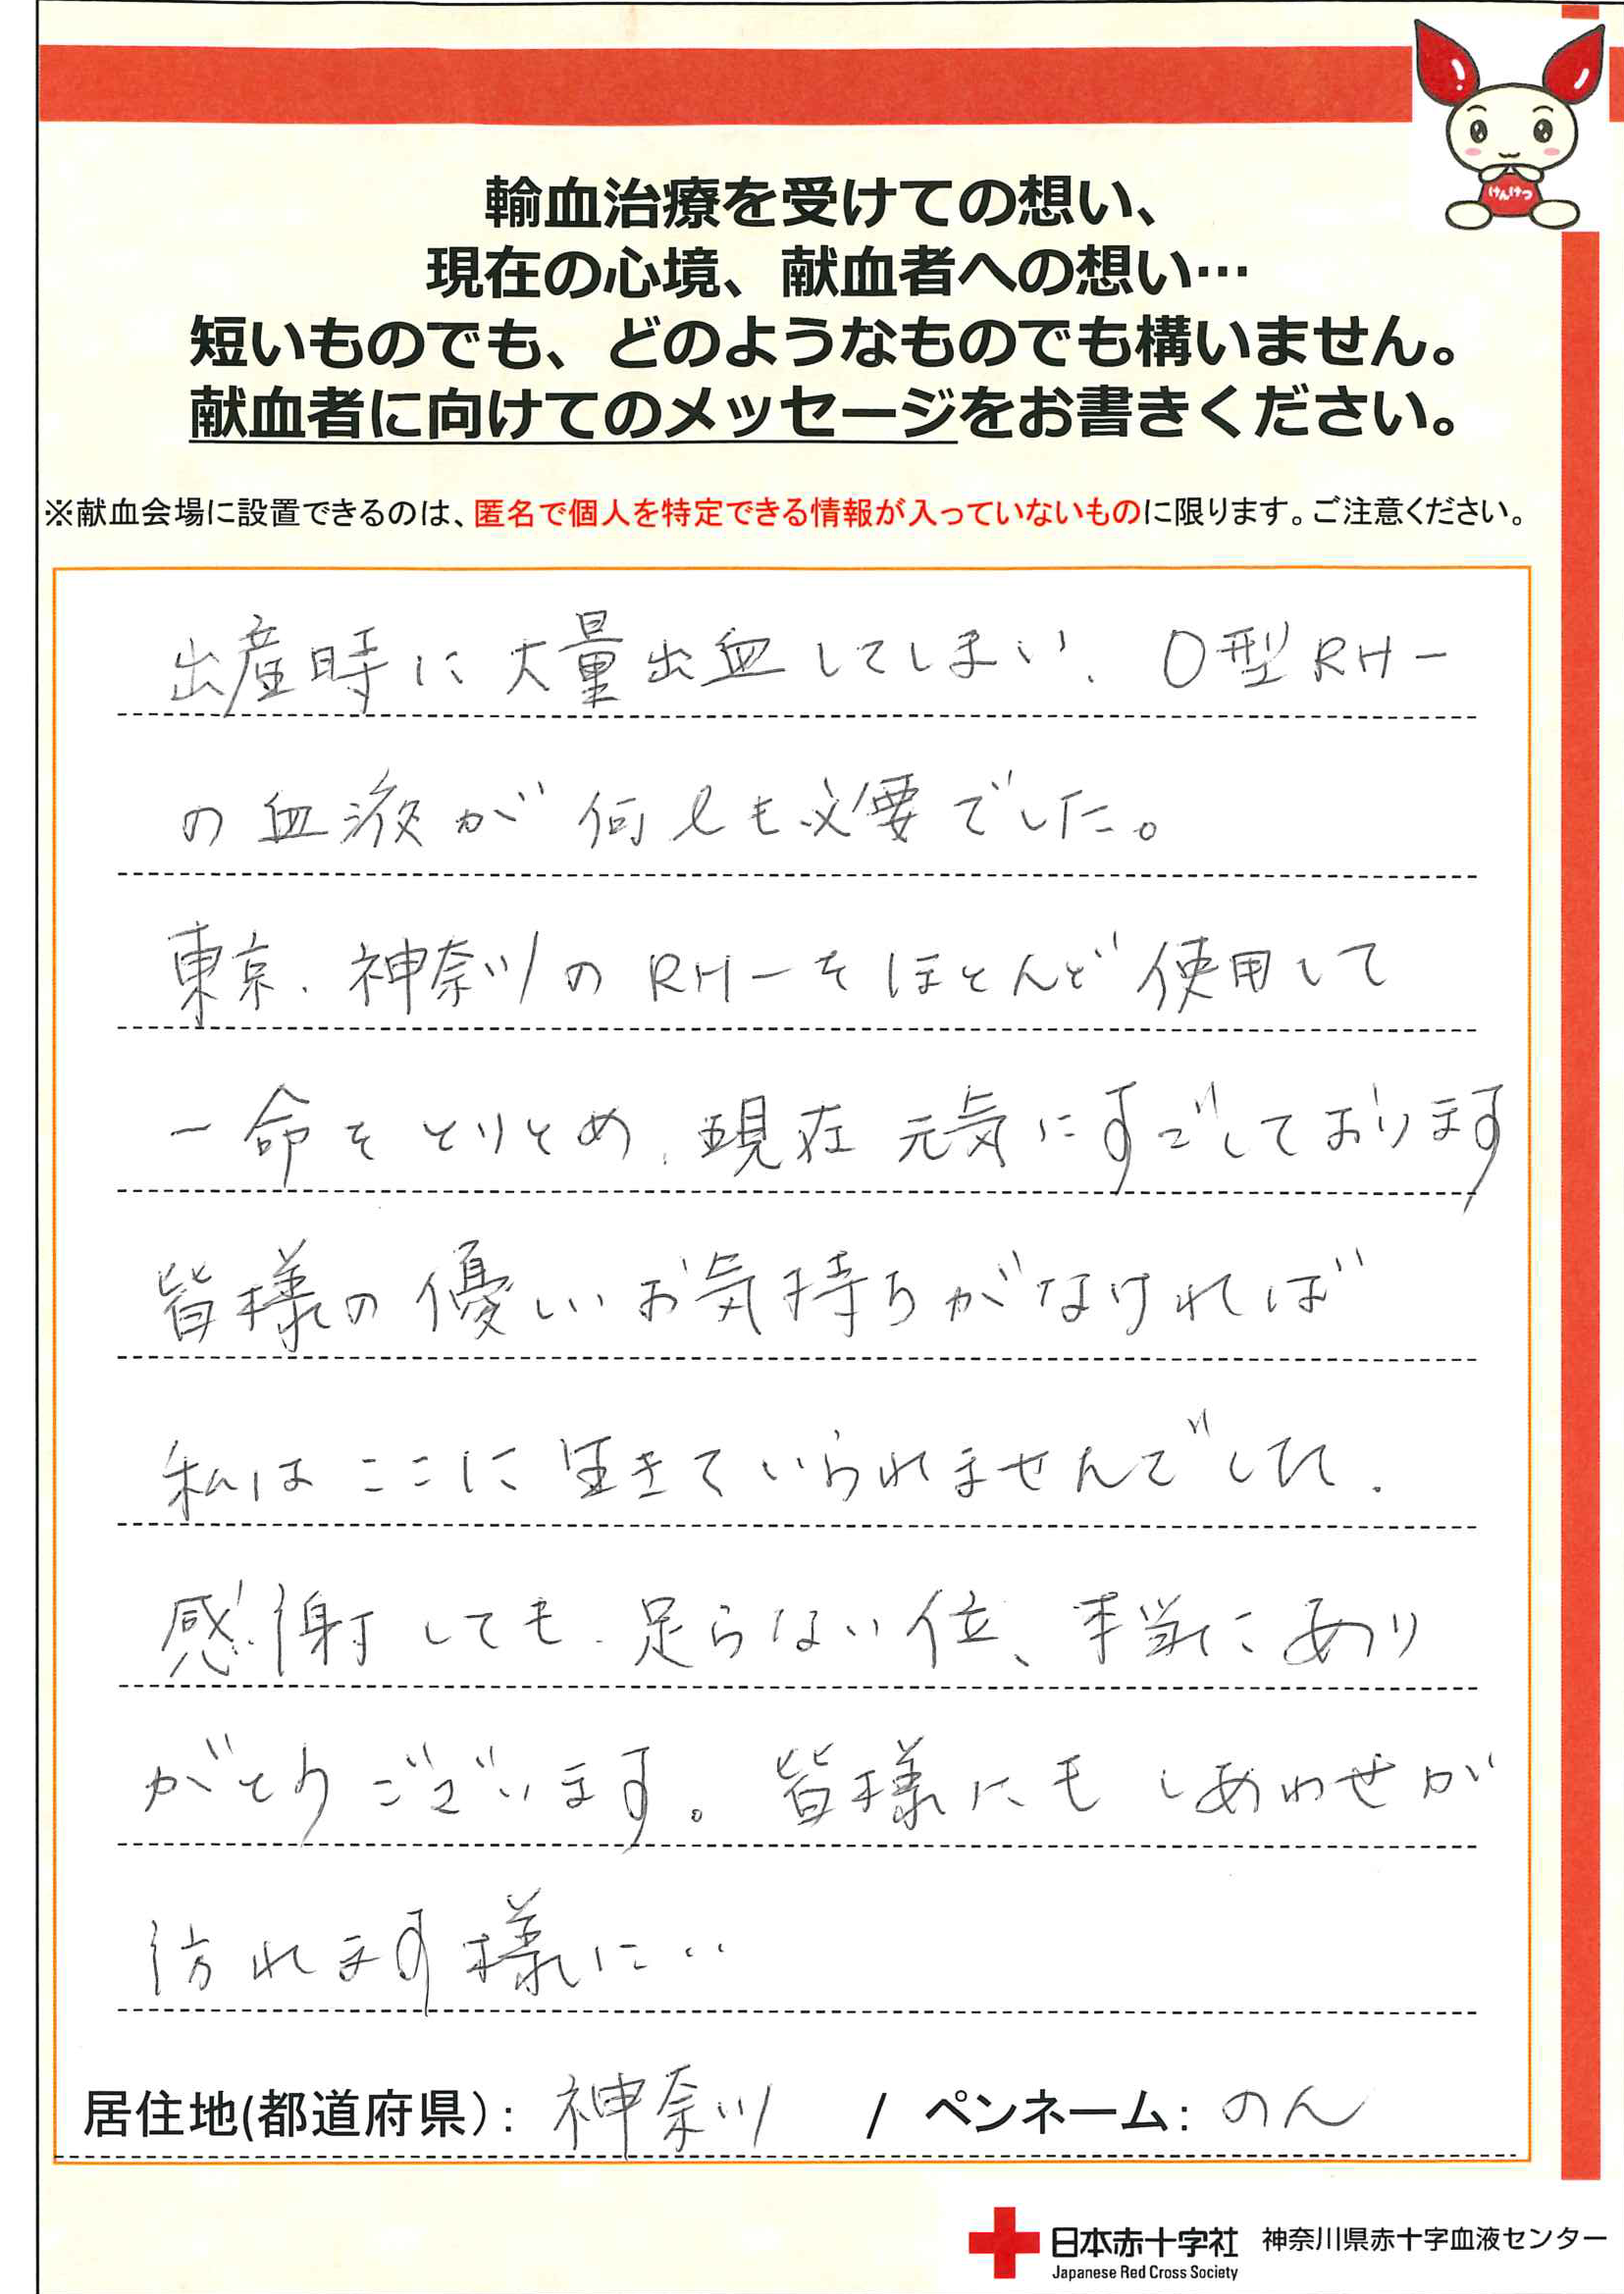 けんけつ
輸血治療を受けての想い、
現在の心境、献血者への想い…
短いものでも、どのようなものでも構いません。
献血者に向けてのメッセージをお書きください。
※献血会場に設置できるのは、匿名で個人を特定できる情報が入っていないものに限ります。ご注意ください。
出産時に大量出血してしまい、O型RH－
の血液が何ℓも必要でした。
東京、神奈川のRH－をほとんど使用して
一命をとりとめ、現在元気にすごしております
皆様の優しいお気持ちがなければ
私はここに生きていられませんでした。
感謝しても、足らない位、本当にあり
がとうございます。皆様にもしあわせが
訪れます様に‥
居住地(都道府県)： 神奈川 / ペンネーム： のん
日本赤十字社 神奈川県赤十字血液センター
Japanese Red Cross Society